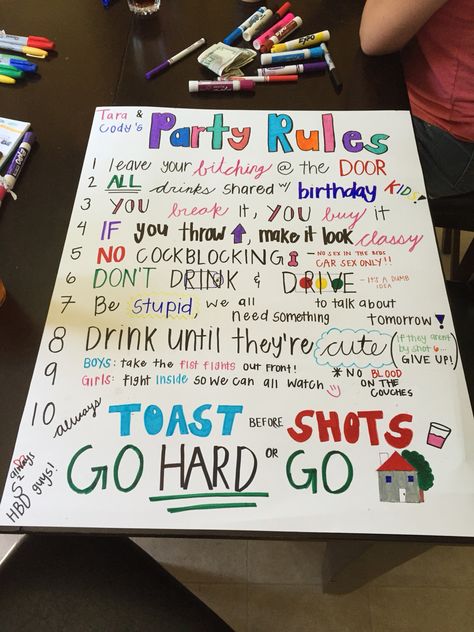 Tara & Cody's Party Rules
1 leave your bitching @ the DOOR
2 ALL drinks shared w/ birthday KIDS!
3 YOU break it, YOU buy it
4 IF you throw ↑, make it look classy
5 NO COCKBLOCKING - NO SEX IN THE BEDS
CAR SEX ONLY!!
6 DON'T DRINK & DRIVE - IT'S A DUMB IDEA
7 Be stupid, we all need something to talk about tomorrow!
8 Drink until they're cute (if they aren't by shot 6... GIVE UP!)
9 BOYS: take the fist fights out front!
Girls: fight inside so we can all watch
* NO BLOOD ON THE COUCHES
10 always TOAST BEFORE SHOTS
GO HARD OR GO
HBD guys!